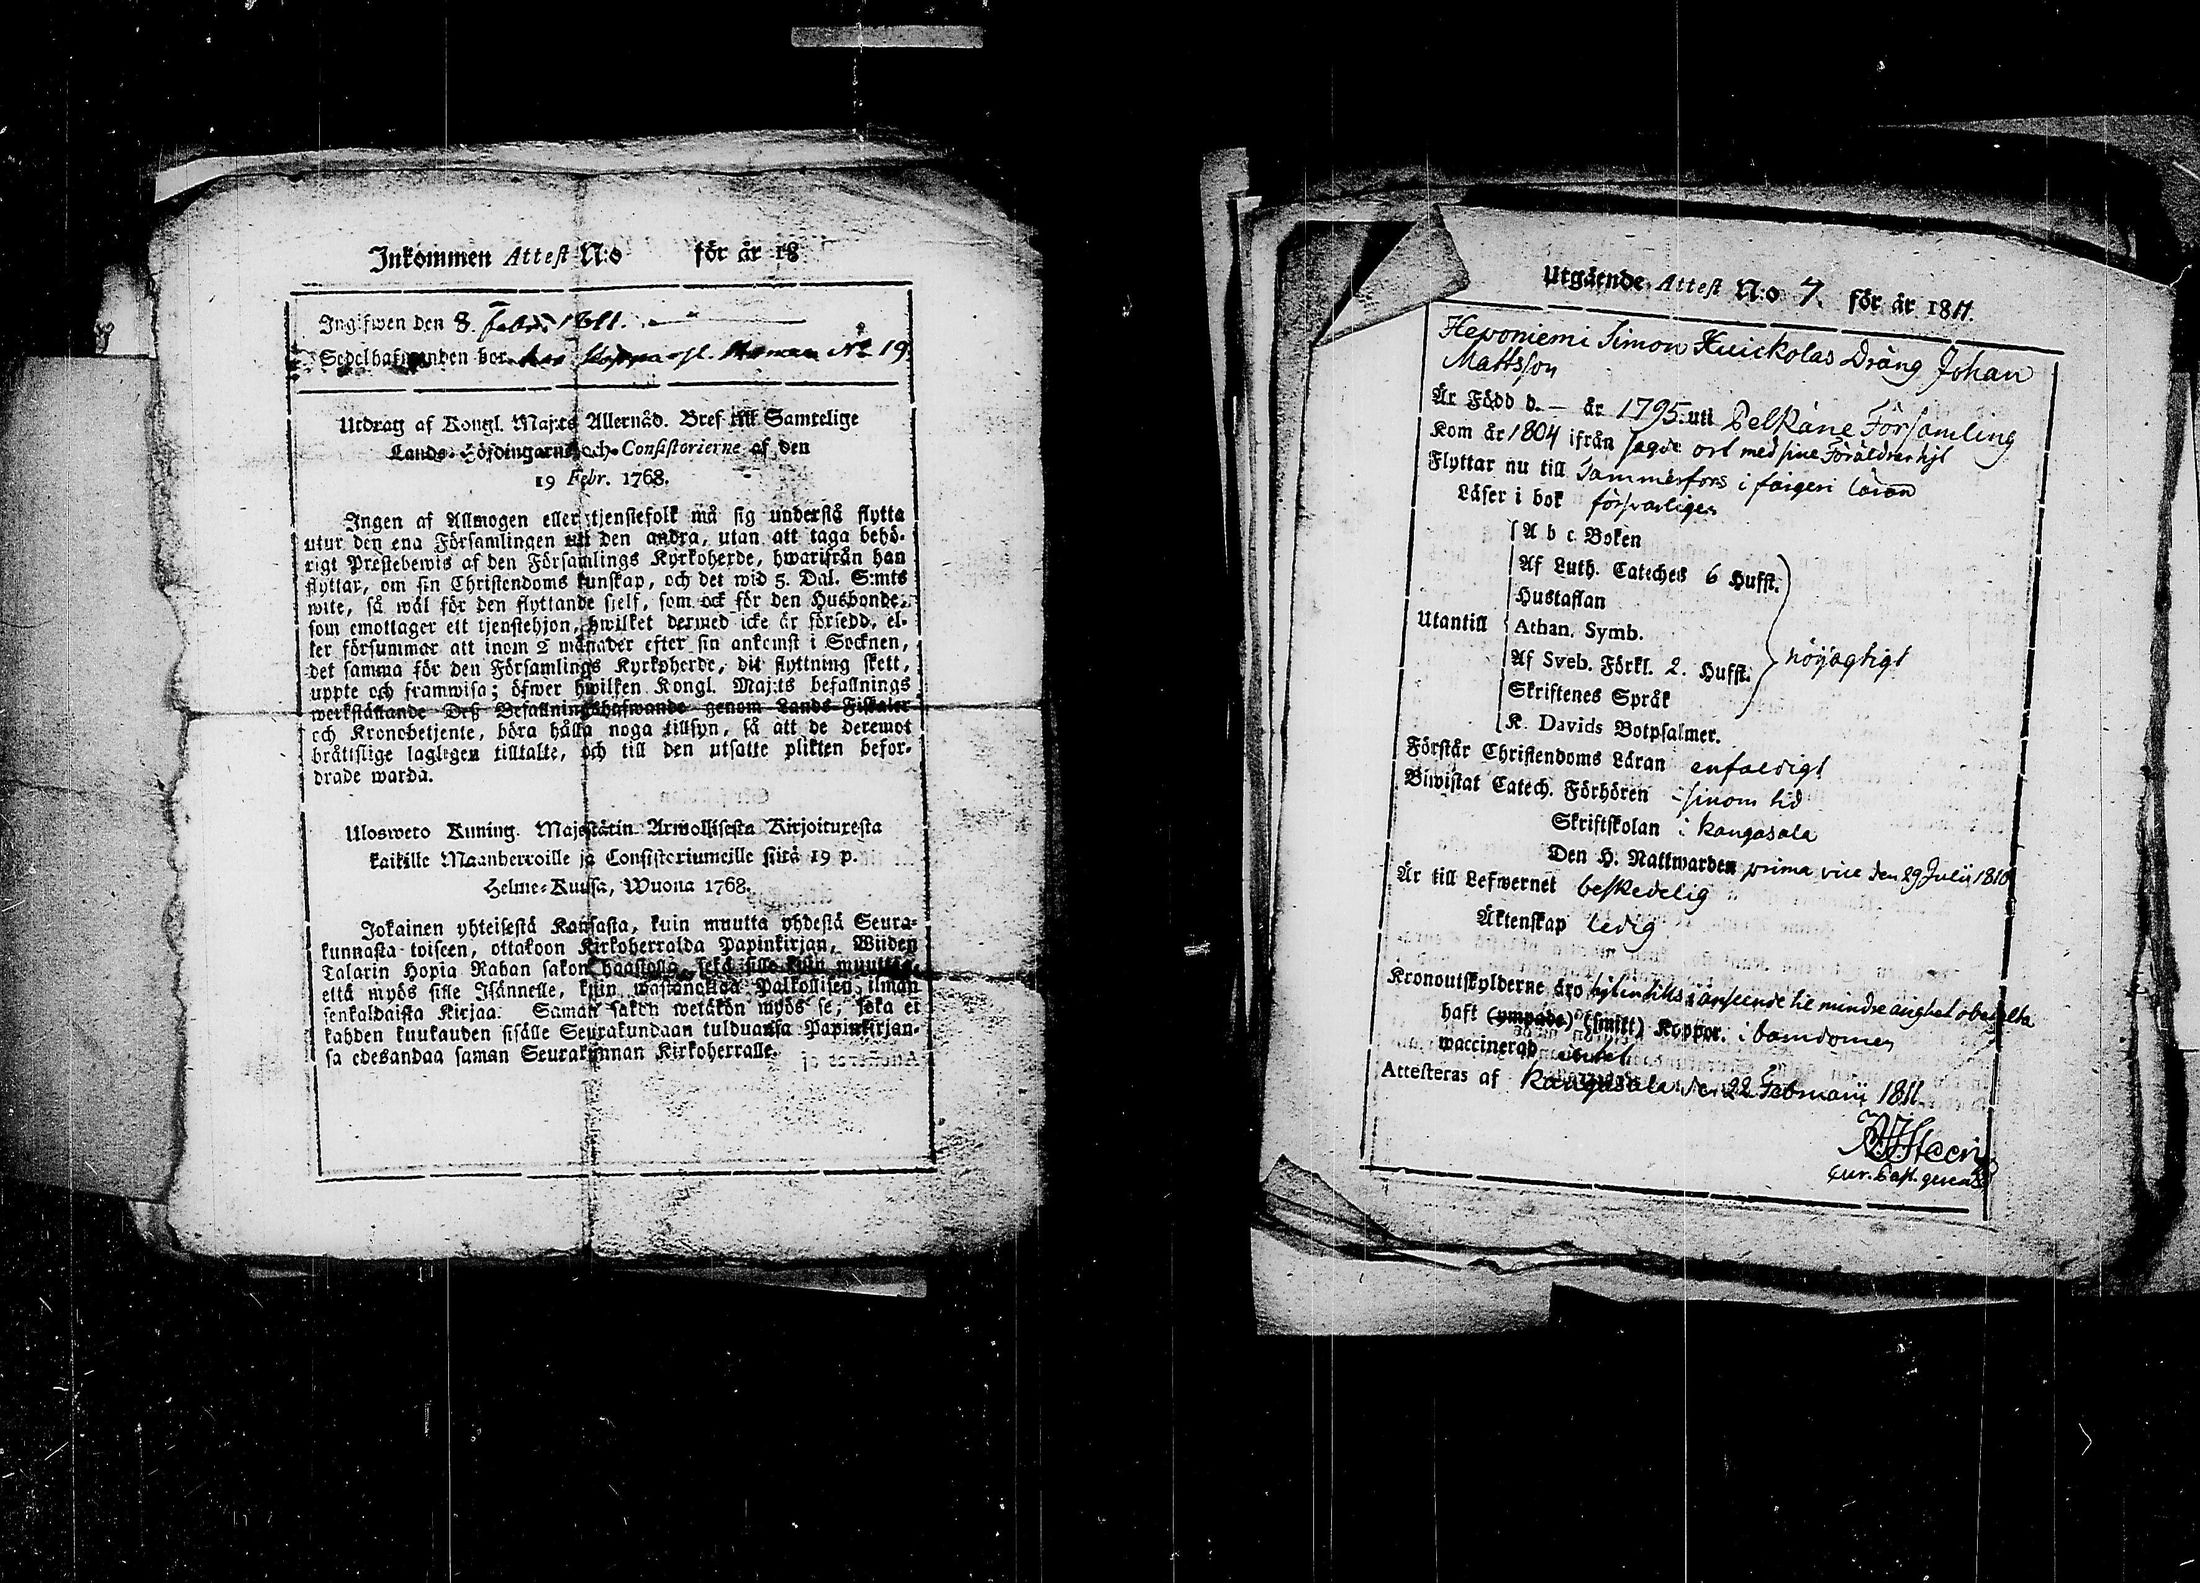 Inkommen Attest N:o för år 18
Ingifwen den 8 Febr. 1811.
Sedelhafwanden bor hos No 19
Utdrag af Kongl. Maj:ts Allernåd. Bref till Samtelige
Lands-Höfdingarne och Consistorierne af den
19 Febr. 1768.
Ingen af Allmogen eller tjenstefolk må sig understå flytta
utur den ena Församlingen uti den andra, utan att taga behö-
rigt Prestebewis af den Församlings Kyrkoherde, hwarifrån han
flyttar, om sin Christendoms kunskap, och det wid 5. Dal. S:mts
wite, så wäl för den flyttande sjelf, som ock för den Husbonde,
som emottager ett tjenstehjon, hwilket dermed icke är försedd, el-
ler försummar att inom 2 månader efter sin ankomst i Socknen,
det samma för den Församlings Kyrkoherde, dit flyttning skett,
uppte och framwisa; öfwer hwilken Kongl. Maj:ts befallnings
werkställande Deß Befallningshafwande genom Lands Fiskaler
och Kronobetjente, böra hålla noga tillsyn, så att de deremot
bråtislige lagligen tilltalte, och till den utsatte plikten befor-
drade warda.
Ulosweto Kuning. Majestätin Armollisesta Kirjoituresta
kaikille Maanherroille ja Consistoriumeille siitä 19 p.
Helme-Kuusa, Wuona 1768.
Jokainen yhteisestä Kansasta, kuin muutta yhdestä Seura-
kunnasta toiseen, ottakoon Kirkoherralda Papinkirjan, Wiiden
Talarin Hopia Rahan sakon haastolla, sekä sille kuin muutta,
että myös sille Isännelle, kuin wastanottaa Palkollisen, ilman
senkaldaista Kirjaa. Saman sakon wetäkön myös se, joka ei
kahden kuukauden sisälle Seurakundaan tulduansa Papinkirjan-
sa edesandaa saman Seurakunnan Kirkoherralle.
Utgående Attest N:o 7. för år 1811.
Heponiemi Simon Kuickolas Dräng Johan
Mattsson
Är Född d. — år 1795. uti Pelkäne Församling
Kom år 1804 ifrån sagde ort med sine Föräldrar hjt
Flyttar nu till Tammerfors i färgeri läran
Läser i bok försvarligen
A b c Boken
Af Luth. Cateches 6 Hufst.
Hustaflan
Utantill Athan. Symb.
Af Sveb. Förkl. 2. Hufst. nöijagtigt
Skriftenes Språk
K. Davids Botpsalmer.
Förstår Christendoms Läran enfaldigt
Biwistat Catech. Förhören sinom tid
Skriftskolan i Kangasala
Den H. Nattwarden prima vice den 29 Julii 1810
Är till Lefwernet beskedelig
Äktenskap ledig
Kronoutskylderne äro hjtintills i anseende til mindre årighet obetalta
haft (ympade) (smitt) Koppor. i barndomen
waccinerad
Attesteras af Kangasala den 22 Februarii 1811